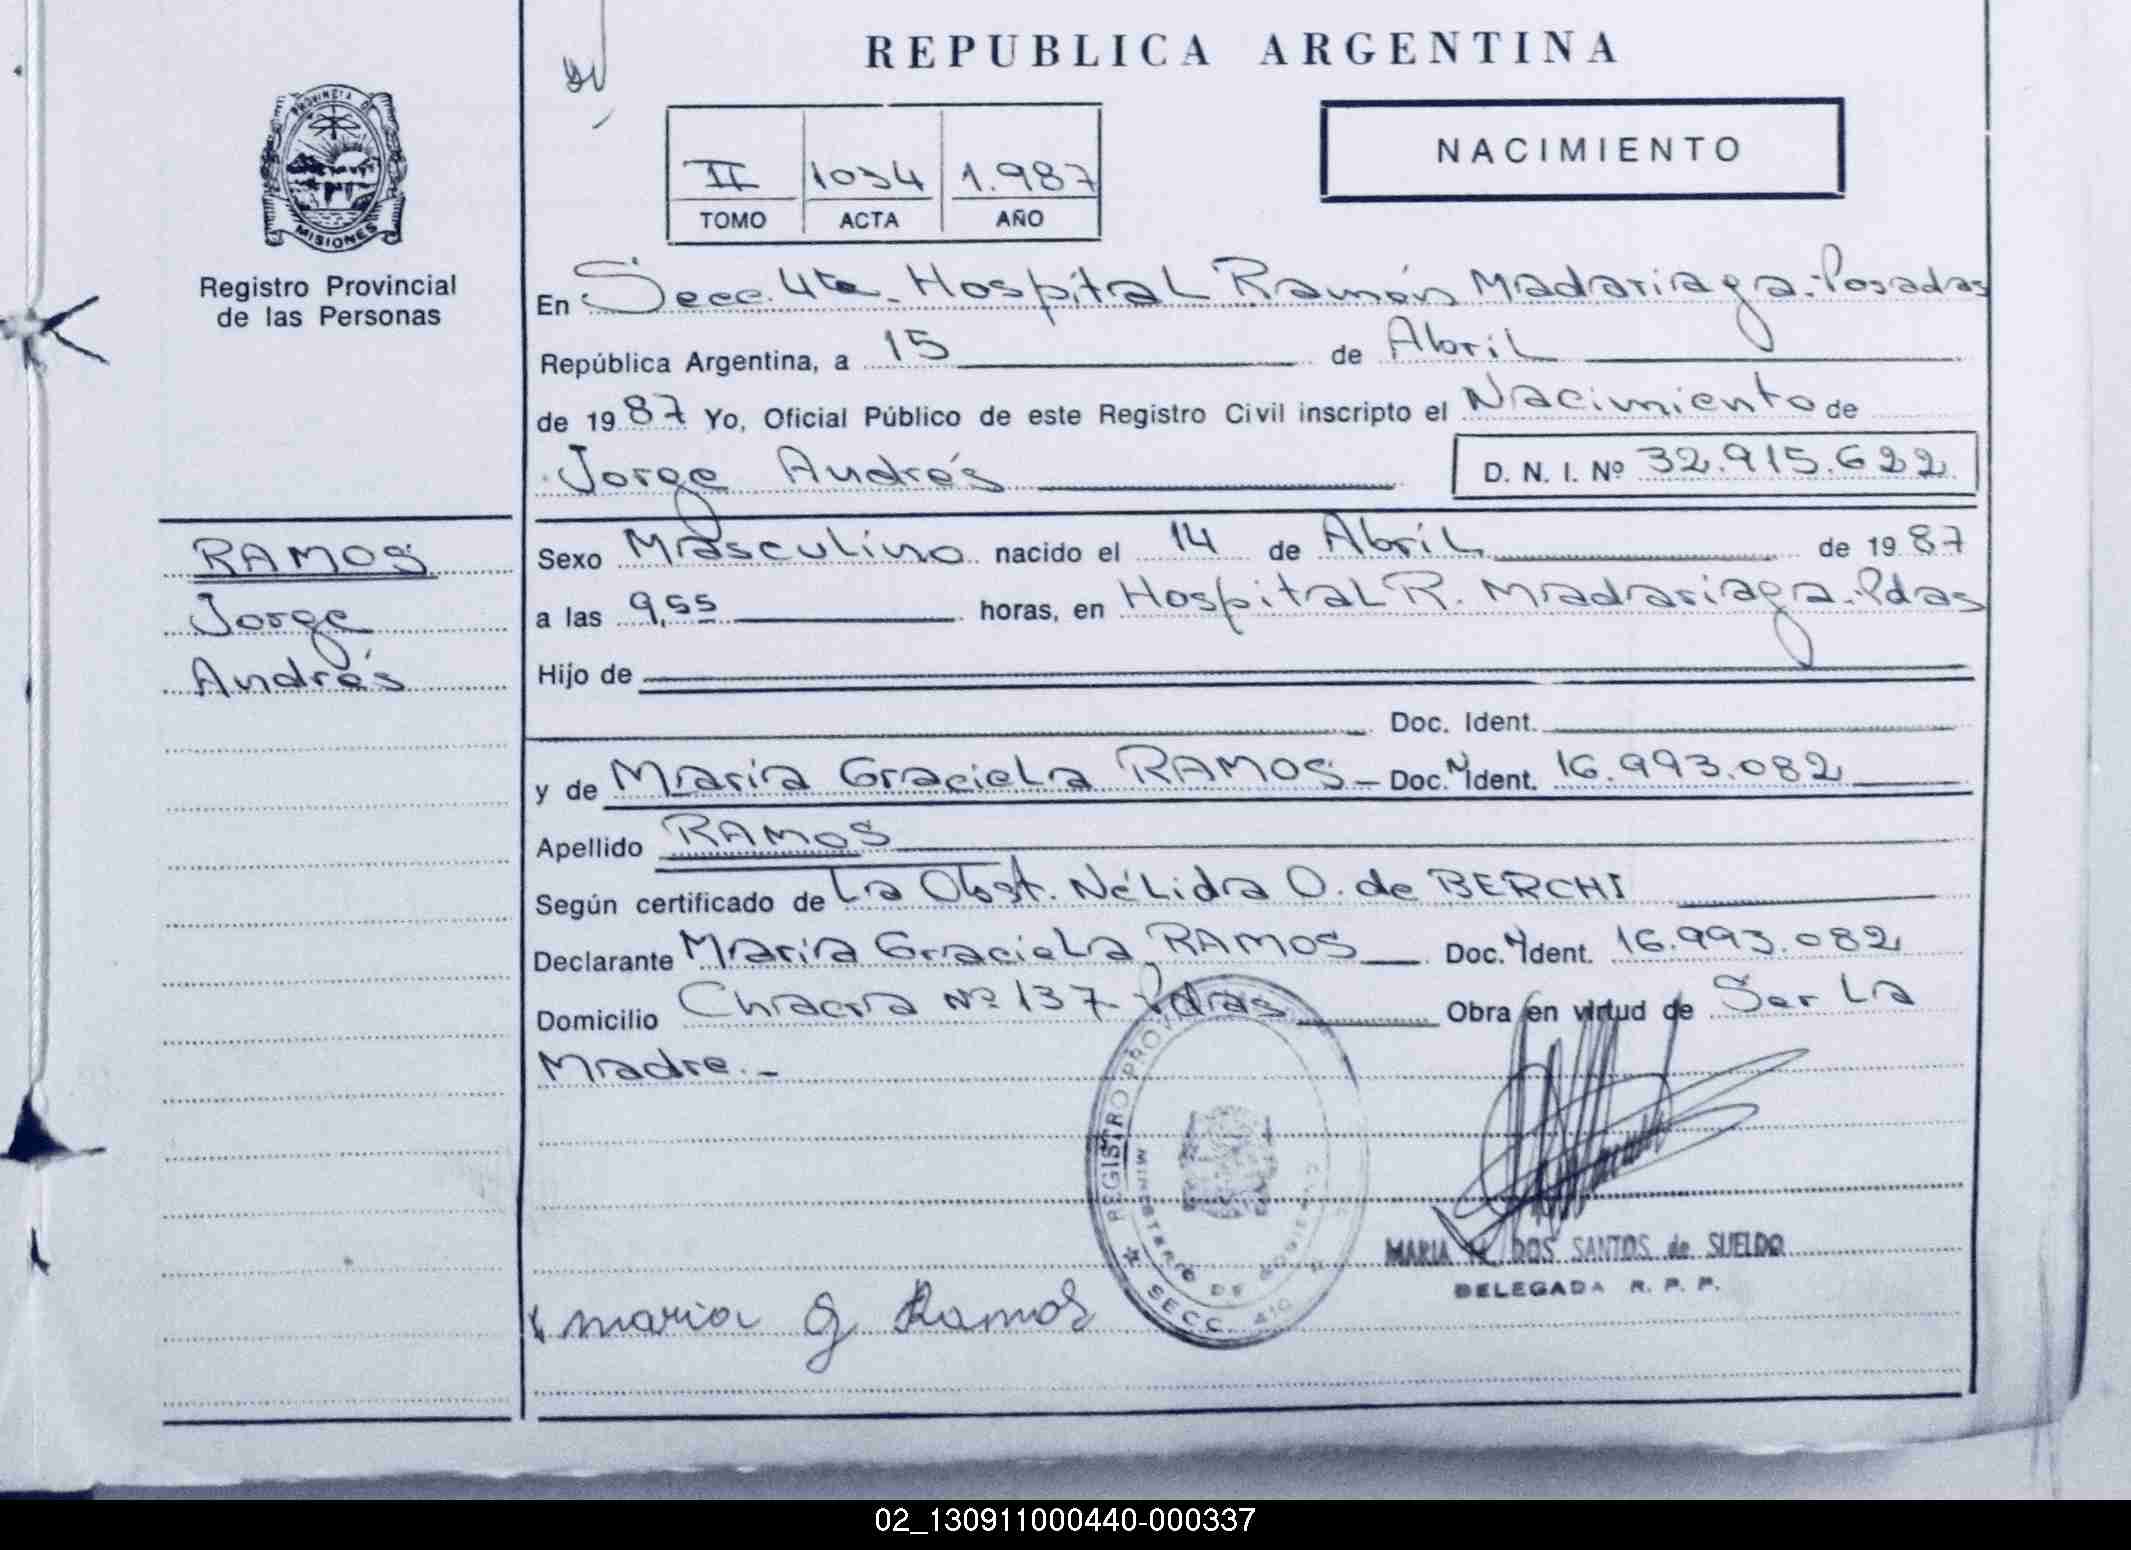 REPUBLICA ARGENTINA
PROVINCIA DE
MISIONES
Registro Provincial
de las Personas
II 1034 1.987
TOMO ACTA AÑO
NACIMIENTO
En Secc. 4ta. Hospital Ramón Madariaga.-Posadas
República Argentina, a 15 de Abril
de 1987 Yo, Oficial Público de este Registro Civil inscripto el Nacimiento de
Jorge Andrés D. N. I. Nº 32.915.622
RAMOS
Jorge
Andrés
Sexo Masculino nacido el 14 de Abril de 1987
a las 9,55 horas, en Hospital R. Madariaga.-Pdas
Hijo de
Doc. Ident.
y de María Graciela RAMOS - Doc. Ident. 16.993.082
Apellido RAMOS
Según certificado de La Obst. Nélida O. de BERCHI
Declarante María Graciela RAMOS Doc. Ident. 16.993.082
Domicilio Chacra Nº 137 Pdas Obra en virtud de Ser La
Madre.-
REGISTRO PROV
MINISTERIO DE
SECC.
MARIA DOS SANTOS de SUELDO
DELEGADA R. P. P.
maria g Ramos
02_130911000440-000337